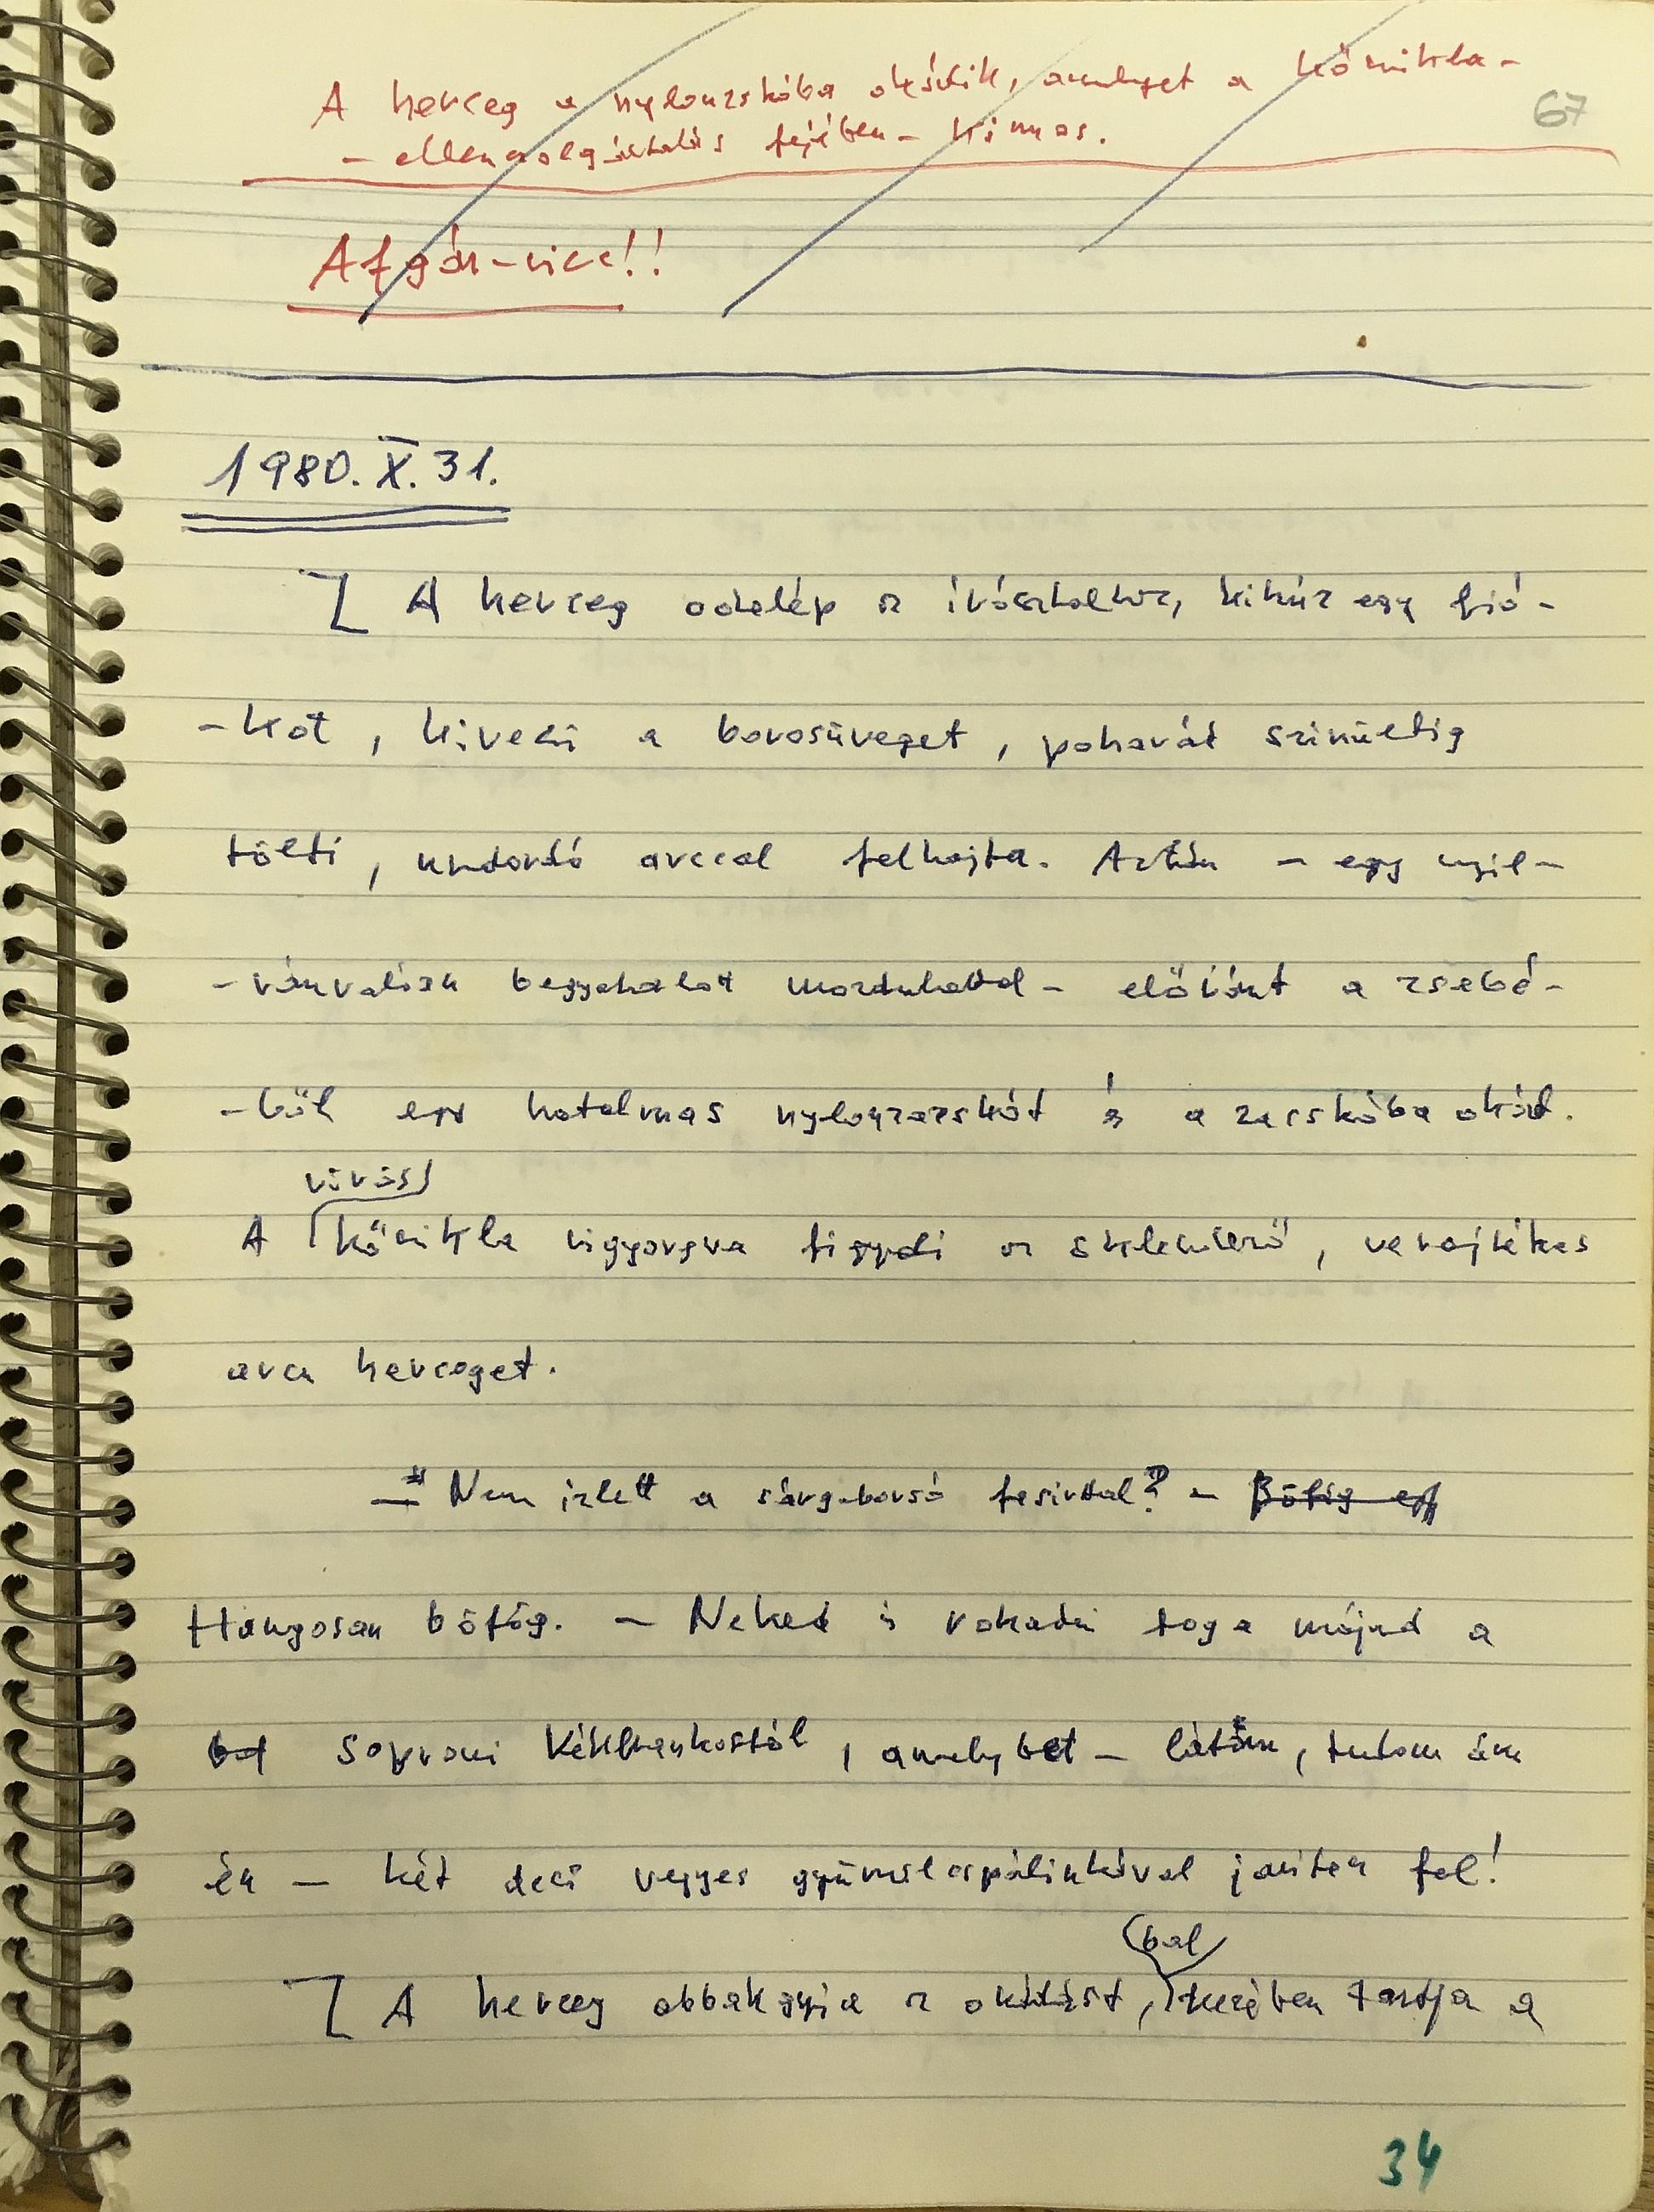 A herceg a nylonzskóba okádik, amelyet a kőszikla-
67
- ellenszolgáltatás fejében - kimos.
Afgán-vicc!!
1980. X. 31.
A herceg odalép az íróasztalhoz, kihúz egy fió-
-kot, kiveszi a borosüveget, poharát színültig
tölti, undorító arccal felhajtja. Aztán - egy nyil-
-vánvalóan begyakorlott mozdulattal - előránt a zsebé-
-ből egy hatalmas nylonzacskót és a zacskóba okád.
vörös
A kőszikla vigyorogva figyeli az öklendező, verejtékes
arcu herceget.
- Nem izlett a sárgaborsó fasirttal? - Böfög egy
Hangosan böfög. - Neked is rohadni fog a májad a
bot soproni Kékfrankostól, amelyet - látom, tudom ám
én - két deci vegyes gyümölcspálinkával javitasz fel!
bal
A herceg abbahagyja az okádást, kezében tartja a
34